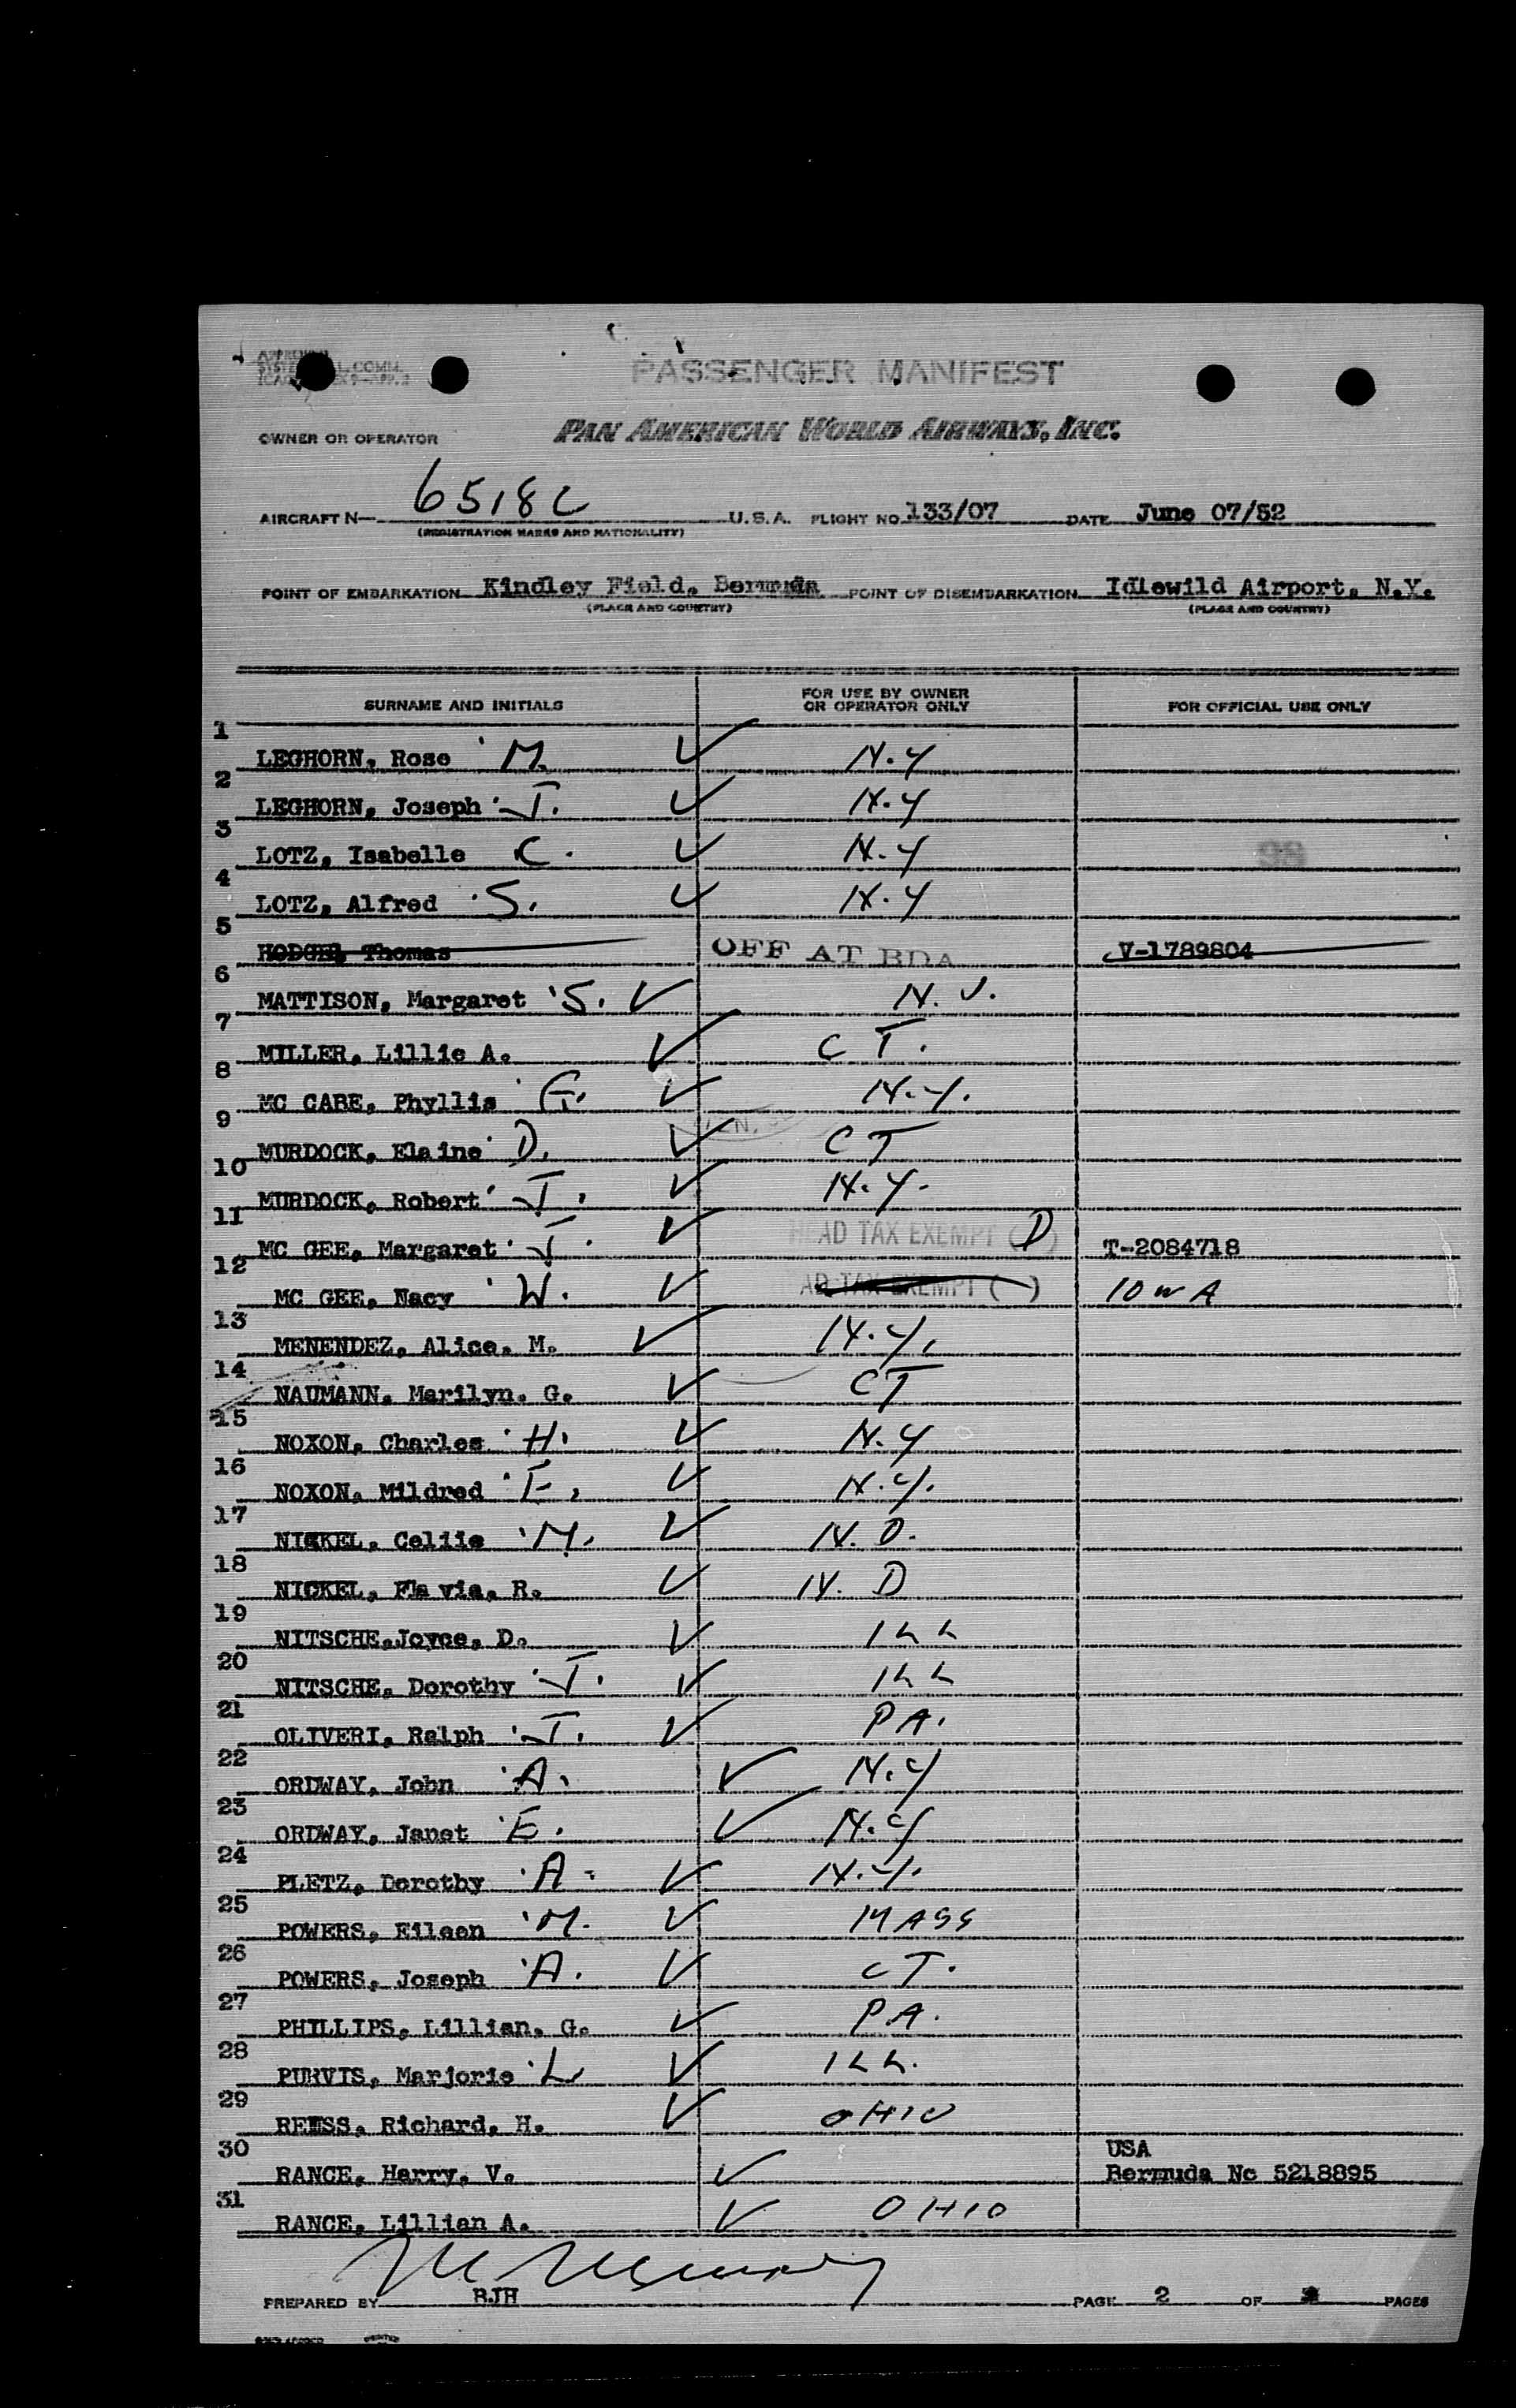 PASSENGER MANIFEST
OWNER OR OPERATOR PAN AMERICAN WORLD AIRWAYS, INC.
AIRCRAFT N— 6518C U.S.A. FLIGHT NO. 133/07 DATE June 07/52
(REGISTRATION MARKS AND NATIONALITY)
POINT OF EMBARKATION Kindley Field, Bermuda POINT OF DISEMBARKATION Idlewild Airport, N.Y.
(PLACE AND COUNTRY) (PLACE AND COUNTRY)
SURNAME AND INITIALS FOR USE BY OWNER OR OPERATOR ONLY FOR OFFICIAL USE ONLY
1 LEGHORN, Rose M. ✓ N.Y
2 LEGHORN, Joseph J. ✓ N.Y
3 LOTZ, Isabelle C. ✓ N.Y 98
4 LOTZ, Alfred S. ✓ N.Y
5 HODGE, Thomas OFF AT BDA V-1789804
6 MATTISON, Margaret S. ✓ N.J.
7 MILLER, Lillie A. ✓ CT.
8 MC CABE, Phyllis G. ✓ N.Y.
9 MURDOCK, Elaine D. ✓ CT
10 MURDOCK, Robert J. ✓ N.Y.
11 MC GEE, Margaret J. ✓ HEAD TAX EXEMPT (D) T-2084718
12 MC GEE, Nacy W. ✓ AD TAX EXEMPT ( ) IOWA
13 MENENDEZ, Alice. M. ✓ N.Y.
14 NAUMANN. Marilyn. G. ✓ CT
15 NOXON, Charles H. ✓ N.Y
16 NOXON, Mildred E. ✓ N.Y.
17 NICKEL. Celiie M. ✓ N.D.
18 NICKEL, Flavia, R. ✓ N.D
19 NITSCHE,Joyce, D. ✓ ILL
20 NITSCHE, Dorothy J. ✓ ILL
21 OLIVERI, Ralph J. ✓ PA.
22 ORDWAY, John A. ✓ N.Y
23 ORDWAY, Janet E. ✓ N.Y
24 PLETZ, Dorothy A. ✓ N.Y.
25 POWERS, Eileen M. ✓ MASS
26 POWERS, Joseph A. ✓ CT.
27 PHILLIPS, Lillian, G. ✓ P.A.
28 PURVIS, Marjorie L ✓ ILL.
29 REUSS, Richard, H. ✓ OHIO
30 RANCE, Harry, V. ✓ USA Bermuda No 5218895
31 RANCE, Lillian A. ✓ OHIO
PREPARED BY RJH PAGE 2 OF PAGES